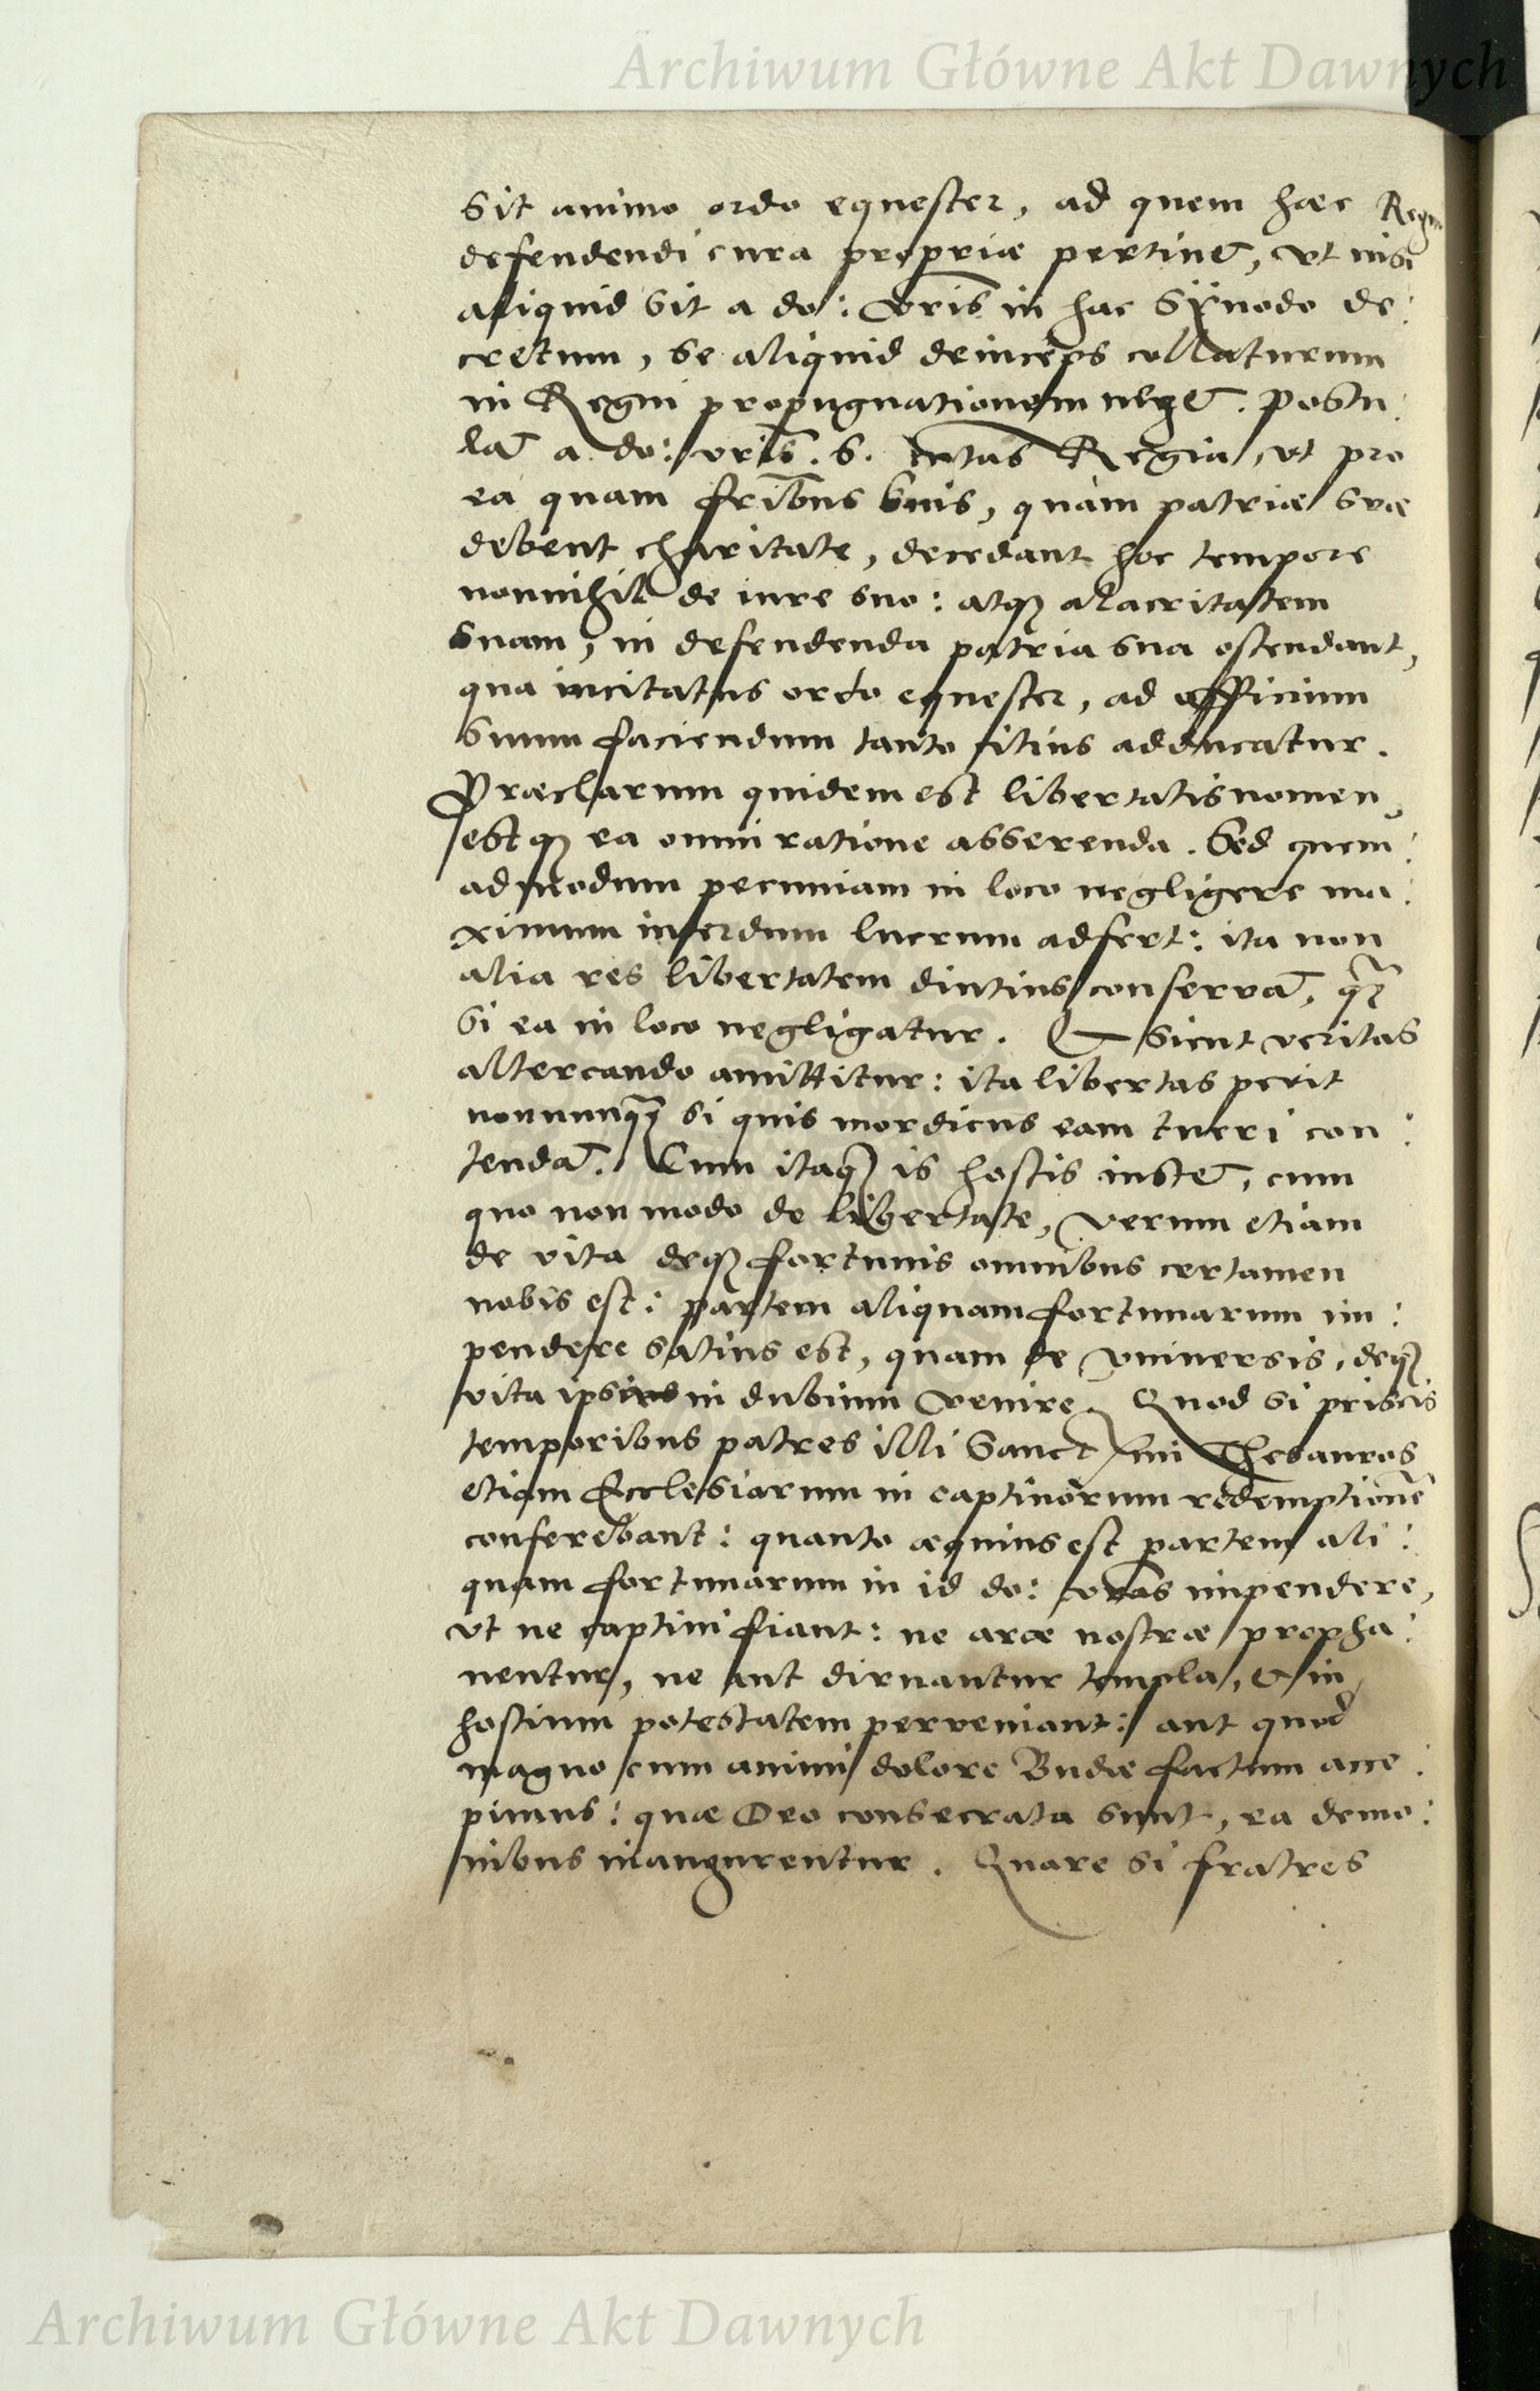 Archiwum Główne Akt Dawnych
sit animo ordo equester, ad quem haec Regni
defendendi cura propriae pertinet̄, ut nisi
aliquid sit a do: vrīs in hac Synodo de:
cretum, se aliquid deinceps collaturum
in Regni propugnationem neget̄. Postu:
lat̄ a do: vrīs. S. mtās Regia, ut pro
ea quam frībus suis, quàm patriae suae
debent charitate, decedant hoc tempore
nonnihil de iure suo: atq̨ alacritatem
suam, in defendenda patria sua ostendant,
qua incitatus ordo equester, ad officium
suum faciendum tanto citius adducatur.
Praeclarum quidem est libertatis nomen,
estq̨ ea omni ratione asserenda. Sed quem:
admodum pecuniam in loco negligere ma:
ximum interdum lucrum adfert: ita non
alia res libertatem diutius conservat̄, q̄
si ea in loco negligatur. Et sicut veritas
altercando amittitur: ita libertas perit
nonnunq̄ si quis mordicus eam tueri con:
tendat̄. Cum itaq̨ is hostis instet̄, cum
quo non modo de libertate, verum etiam
de vita deq̨ fortunis omnibus certamen
nobis est: partem aliquam fortunarum im:
pendere satius est, quam de universis, deq̨
vita ipsius in dubium venire. Quod si priscis
temporibus patres illi Sanctssimi Thesauros
etiam Ecclesiarum in captivorum redemptionē
conferebant: quanto aequius est partem ali:
quam fortunarum in id do: vrās impendere,
ut ne captivi fiant: ne arae nostrae propha:
nentur, ne aut diruantur templa, & in
hostium potestatem perveniant: aut quod
magno cum animi dolore Budae factum acce:
pimus: quae Deo consecrata sunt, ea demo:
nibus inaugurentur. Quare si fratres
Archiwum Główne Akt Dawnych